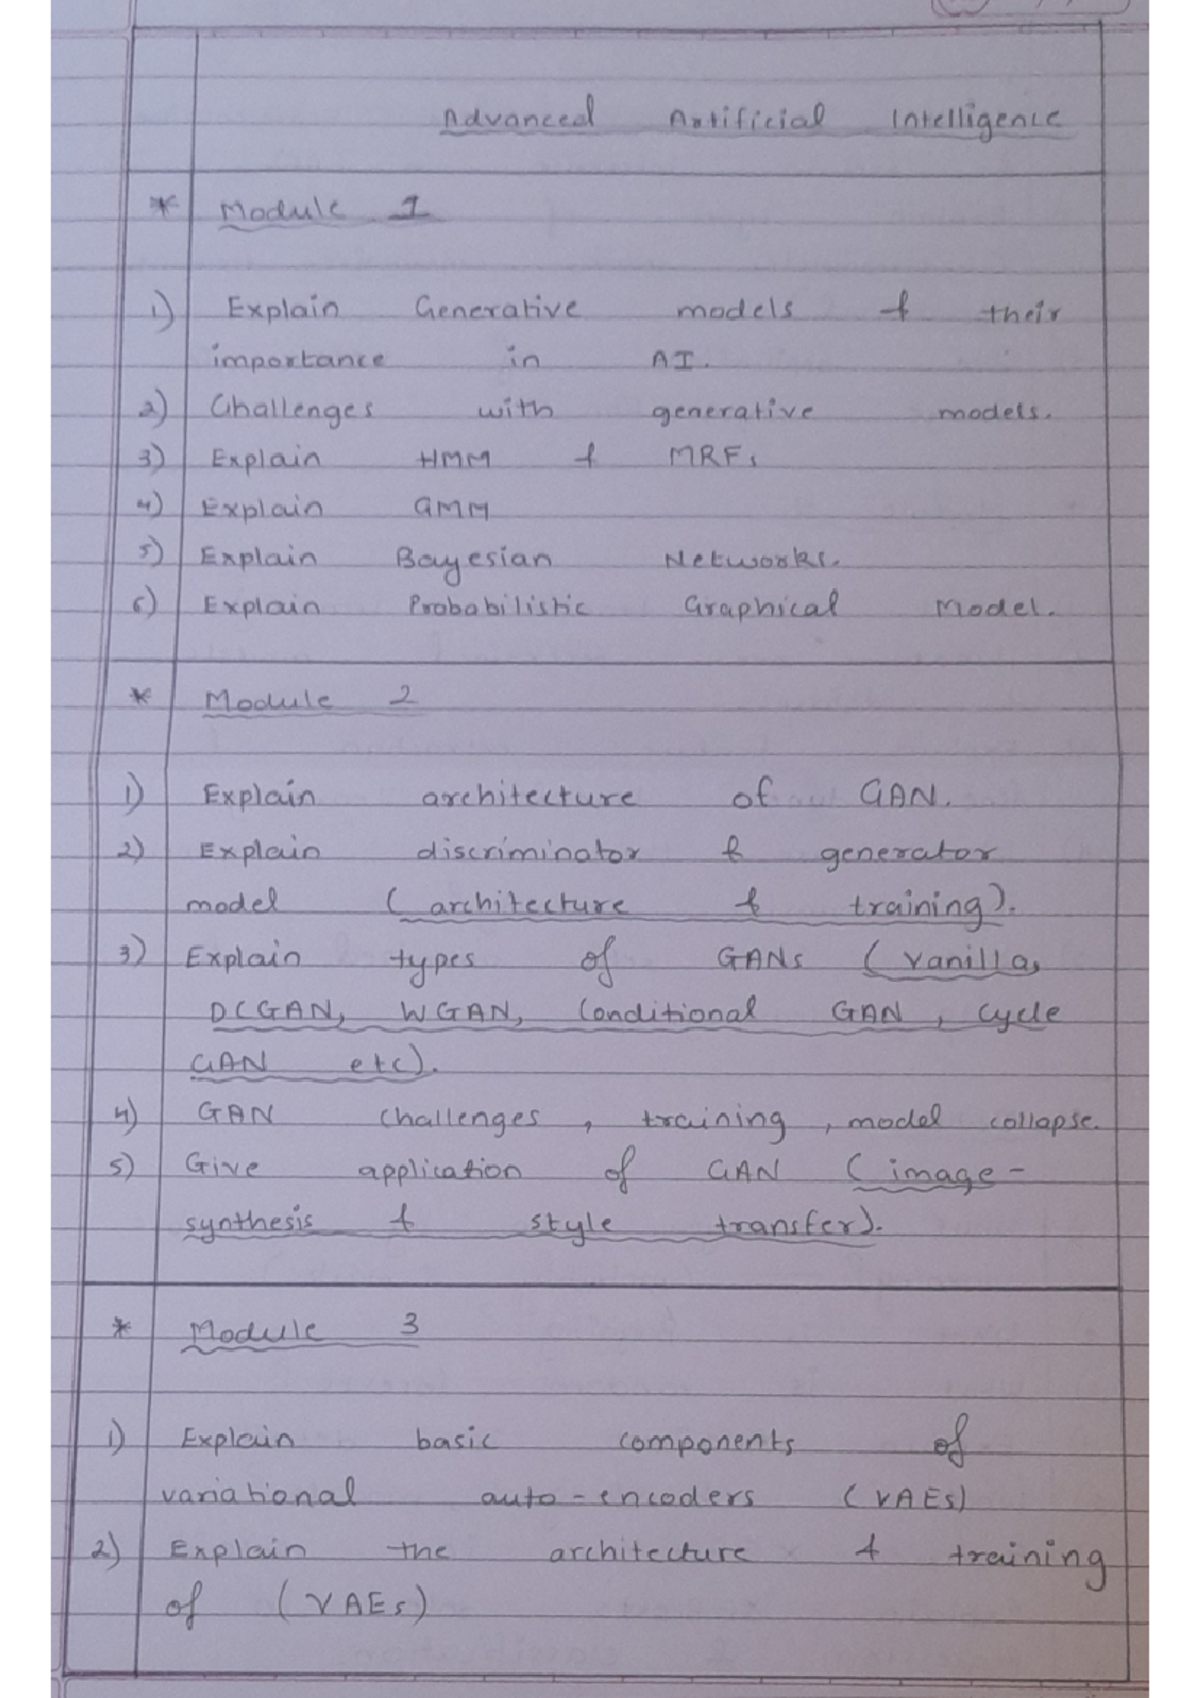 Advanced Artificial Intelligence
* Module 1
1) Explain Generative models & their
importance in AI.
2) Challenges with generative models.
3) Explain HMM & MRFs
4) Explain GMM
5) Explain Bayesian Networks.
6) Explain Probabilistic Graphical Model.
* Module 2
1) Explain architecture of GAN.
2) Explain discriminator & generator
model (architecture & training).
3) Explain types of GANs (vanilla,
DCGAN, WGAN, Conditional GAN, Cycle
GAN etc).
4) GAN challenges, training, model collapse.
5) Give application of GAN (image-
synthesis & style transfer).
* Module 3
1) Explain basic components of
variational auto-encoders (VAEs)
2) Explain the architecture & training
of (VAEs)